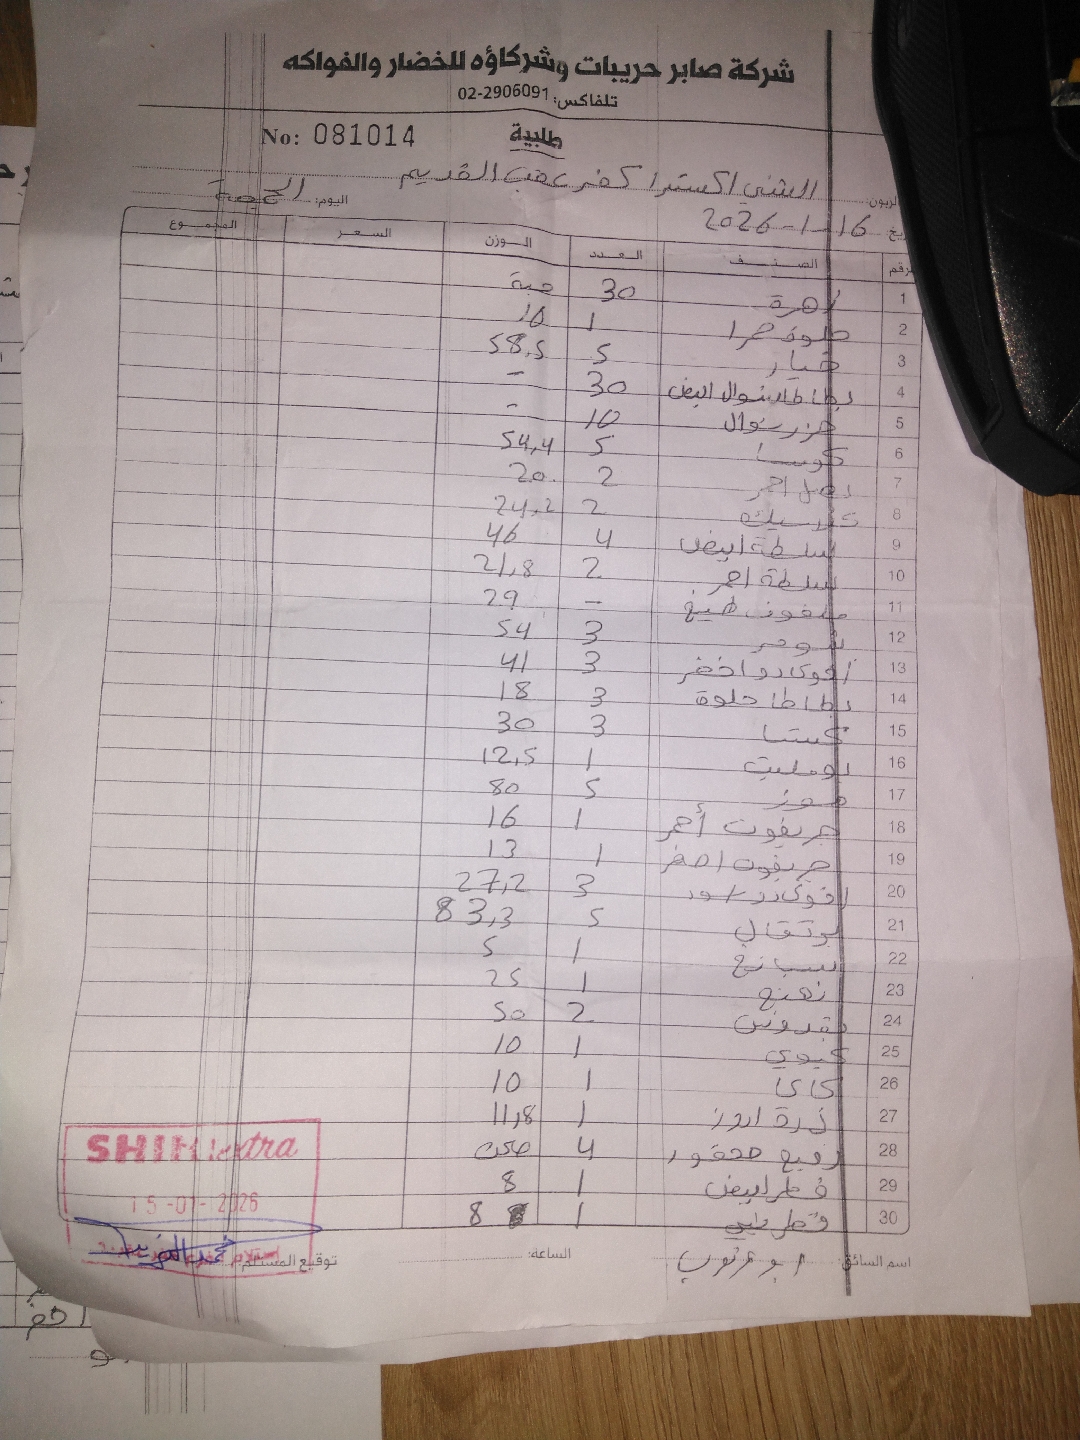 شركة صابر حريبات وشركاؤه للخضار والفواكه
تلفاكس: 02-2906091
طلبية
No: 081014
الزبون: الشني اكسترا كفر عقب القديم
اليوم: الجمعة
2026-1-16
رقم الصنف العدد الوزن السعر المجموع
1 زهرة 30 حبة
2 حلوة حمرا 1 10
3 خيار 5 58,5
4 بطاطا شوال ابيض 30 -
5 جزر شوال 10 -
6 كوسا 5 54,4
7 بصل احمر 2 20
8 2 24,2
9 بسلطة ابيض 4 46
10 بسلطة احمر 2 21,8
11 ملفوف طبيخ - 29
12 شومر 3 54
13 أفوكادو اخضر 3 41
14 بطاطا حلوة 3 18
15 3 30
16 بومليت 1 12,5
17 موز 5 80
18 جريفوت أحمر 1 16
19 جريفوت اصفر 1 13
20 افوكادو اسود 3 27,2
21 بوتقال 5 83,3
22 سبانخ 1 5
23 نعنع 1 25
24 بقدونس 2 50
25 كيوي 1 10
26 كاكا 1 10
27 ذرة 1 11,8
28 4 صحن
29 فطر ابيض 1 8
30 فطر بني 1 8
اسم السائق:
الساعة:
توقيع المستلم:
SHINI extra
15-01-2026